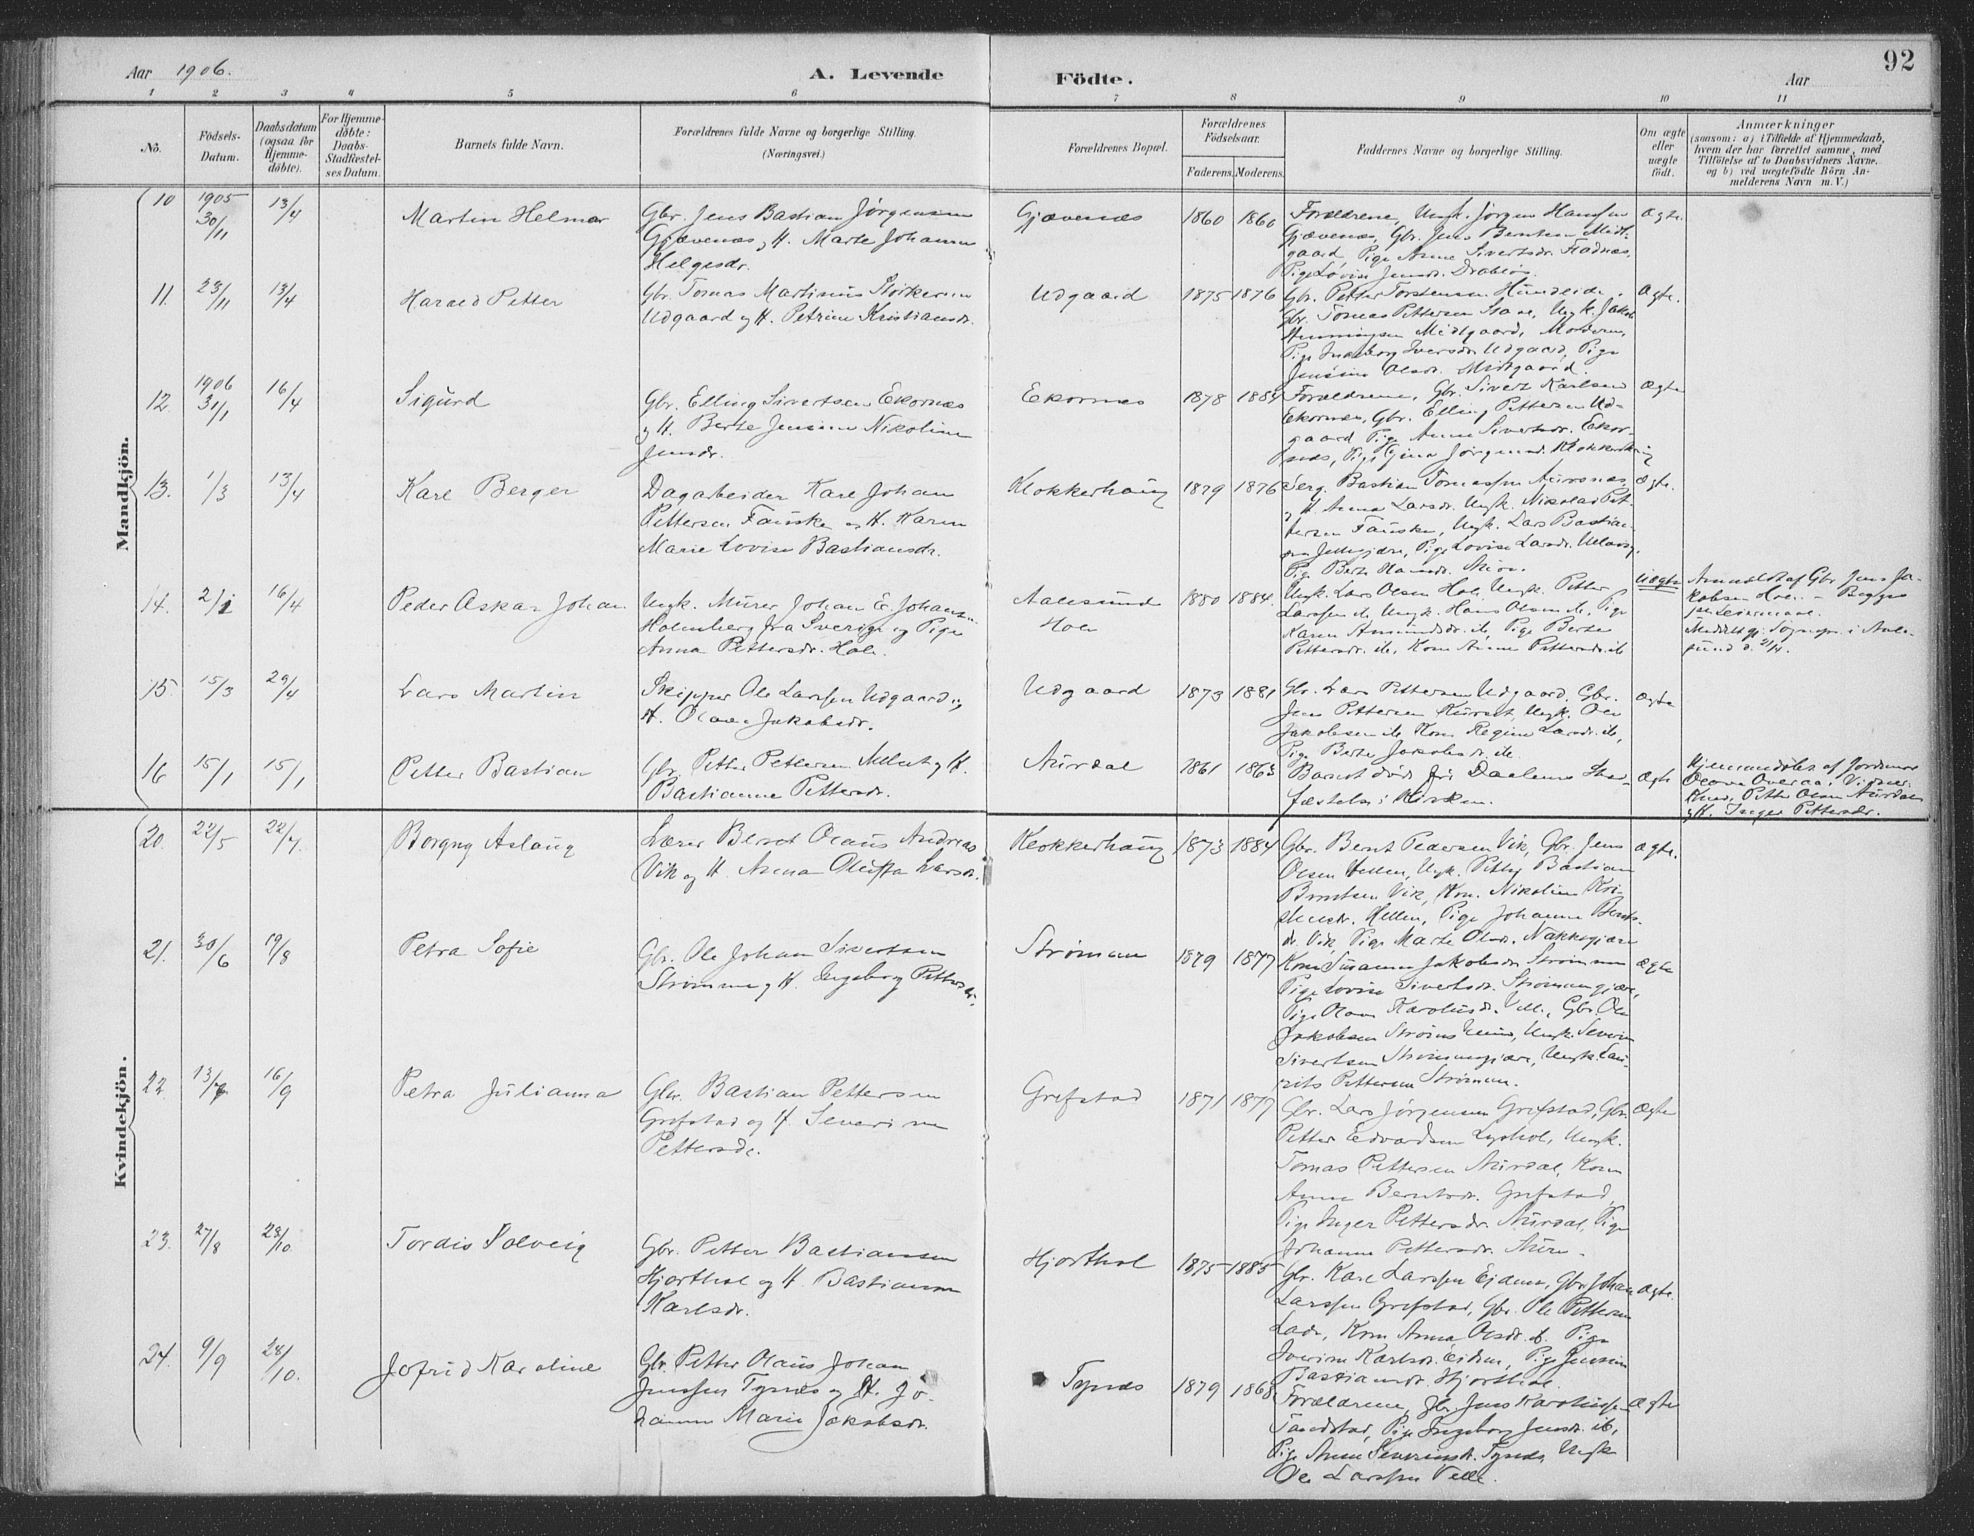 Aar 1906.
A. Levende Födte.
Aar
92
1 2 3 4 5 6 7 8 9 10 11
No.
Födsels-Datum.
Daabsdatum (ogsaa för Hjemme-döbte).
For Hjemme-döbte: Daabs-Stadfæstel-ses Datum.
Barnets fulde Navn.
Forældrenes fulde Navne og borgerlige Stilling. (Næringsvei.)
Forældrenes Bopæl.
Forældrenes Födselsaar.
Faderens. Moderens.
Faddernes Navne og borgerlige Stilling.
Om ægte eller uægte födt.
Anmærkninger (saasom: a) i Tilfælde af Hjemmedaab, hvem der har forrettet samme, med Tilföielse af to Daabsvidners Navne. og b) ved uægtefödte Börn An-melderens Navn m. V.)
Mandkjön.
10 1905 30/11 13/4 Martin Helmer
Gbr. Jens Bastian Jørgensen
Gjævenæs og H. Marte Johanne
Helgesdr.
Gjævenæs 1860 1860
Forældrene, Ungk. Jørgen Hansen
Gjævenæs, Gbr. Jens Berntsen Midt-
gaard, Pige Anne Sivertsdr.
Pige Lovise Jensdr. Drabløs
Ægte.
11. 23/11 13/4 Harald Petter
Gbr. Tomas Martinus Storkersen
Udgaard og H. Petrine Kristiansdr.
Udgaard 1875 1876
Gbr. Petter Torstensen Hundeide.
Gbr. Tomas Pettersen Ungk. Jakob
Henningsen Midtgaard, Moderen,
Pige Ingeborg Iversdr. Udgaard, Pige
Jensine Olsdr. Midtgaard.
Ægte.
12. 1906 31/1 16/4 Sigurd
Gbr. Elling Sivertsen Ekornæs
og H. Berte Jensine Nikoline
Jensdr.
Ekornæs 1878 1884
Forældrene, Gbr. Sivert Karlsen
Ekornæs, Gbr. Elling Pettersen Ud-
gaard, Pige Anne Sivertsdr. Ekor-
næs, Pige Gina Jørgensdr. Klokkerhaug
Ægte
13. 1/3 13/4 Karl Berger
Dagarbeider Karl Johan
Pettersen Fauske og H. Karen
Marie Lovise Bastiansdr.
Klokkerhaug 1879 1876
Serg. Bastian Tomassen Aursnæs
og H. Anna Larsdr. Ungk. Nikolai Pet-
tersen Fauske, Ungk. Lars Bastian-
sen Pige Lovise Larsdr.
Pige Berte
Ægte.
14. 2/1 16/4 Peder Oskar Johan
Ungk. Murer Johan E. Johans.
Holmberg fra Sverige og Pige
Anna Pettersdr. Hole.
Aalesund
Hole
1880 1884.
Ungk. Lars Olsen Hole, Ungk. Petter
Larssen ib. Ungk. Hans Olsen ib, Pige
Karen Amundsdr. ib, Pige Berte
Pettersdr. ib, Kone Anne Pettersdr. ib
Uægte
Anmeldt af Gbr. Jens Ja-
kobsen Hole. - Begges
Meddelt gj. Sogneprt. i Aale-
sund d. 21/4.
15. 15/3 29/4 Lars Martin
Skipper Ole Larssen Udgaard og
H. Olave Jakobsdr.
Udgaard 1873 1881
Gbr. Lars Pettersen Udgaard, Gbr.
Jens Pettersen Kurset, Ungk. Ole
Jakobsen ib, Kone Regine Larsdr. ib,
Pige Berte Jakobsdr. ib
Ægte
16 15/1 15/1 Petter Bastian
Gbr. Petter Pettersen og H.
Bastianne Pettersdr.
Aurdal 1861 1863
Barnet død før Daabens Stad-
fæstelse i Kirken.
Ægte
Hjemmedøbt af Jordmor
Olave Overaa. Vidner:
Petter Olsen Aurdal
og H. Inger Pettersdr.
Kvindekjön.
20. 22/5 22/7. Borgny Aslaug
Lærer Bernt Olaus Andreas
Vik og H. Anna Oluffa Larsdr.
Klokkerhaug 1873 1884
Gbr. Bernt Pedersen Vik, Gbr. Jens
Olsen Hellen, Ungk. Bastian
Berntsen Vik, Kone Nikoline Kri-
stensdr. Hellen, Pige Johanne Bernts-
dr. Vik, Pige Marte Olsdr. Nakkegjære
Ægte.
21. 30/6 19/8 Petra Sofie
Gbr. Ole Johan Sivertsen
Strømme og H. Ingeborg Pettersdr.
Strømme 1879 1877
Kone Susanne Jakobsdr. Strømme
Pige Lovise Sivertsdr. Strømmegjære,
Pige Olave Karolusdr. Velle, Gbr. Ole
Jakobsen Ungk. Severin
Sivertsen Strømmegjære, Ungk. Lau-
rits Pettersen Strømme.
Ægte
22. 13/7 16/9 Petra Julianna
Gbr. Bastian Pettersen
Grefstad og H. Severine
Pettersdr.
Grefstad 1871 1877
Gbr. Lars Jørgensen Grefstad, Gbr.
Petter Edvardsen Lyshol, Ungk.
Tomas Pettersen Aurdal, Kone
Anna Berntsdr. Grefstad,
Pige Inger Pettersdr. Aurdal, Pige
Johanne Pettersdr. Aure.
Ægte
23. 27/8 28/10. Tordis Solveig
Gbr. Petter Bastiansen
Hjorthol og H. Bastianne
Karlsdr.
Hjorthol 1875 1885
Gbr. Karl Larssen Eidem, Gbr. Johan
Larssen Grefstad, Gbr. Ole Pettersen
Lade, Kone Anna Olsdr. ib. Pige
Iverine Karlsdr. Eidem, Pige Jensine
Bastiansdr. Hjorthol.
Ægte.
24. 9/9 28/10. Jofrid Karoline
Gbr. Petter Olaus Johan
Jenssen Tynes og H. Jo-
hanne Marie Jakobsdr.
Tynes 1879 1868
Forældrene, Gbr. Jens Karolussen
Tandstad, Pige Ingeborg Jensdr. ib,
Pige Anne Severinsdr. Tynes, Ungk.
Ole Larssen Velle.
Ægte